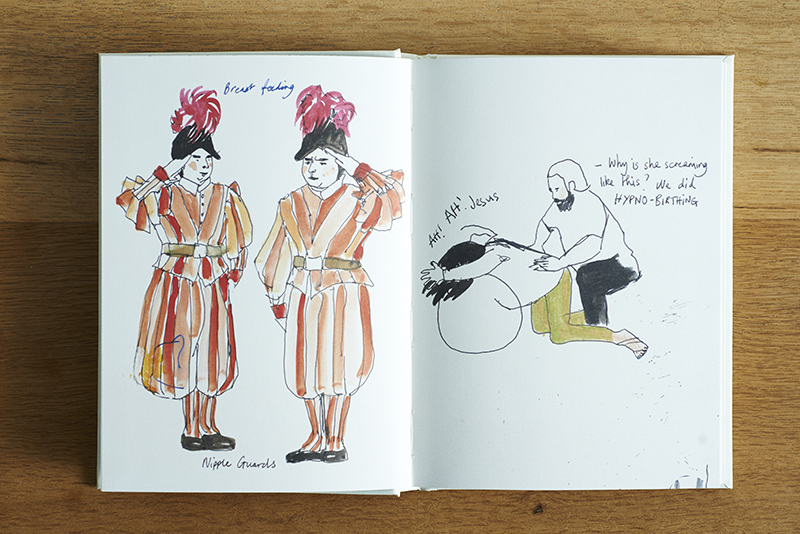 Breast feeding
Nipple Guards
AH! AH! Jesus
- Why is she screaming
like this? We did
HYPNO-BIRTHING